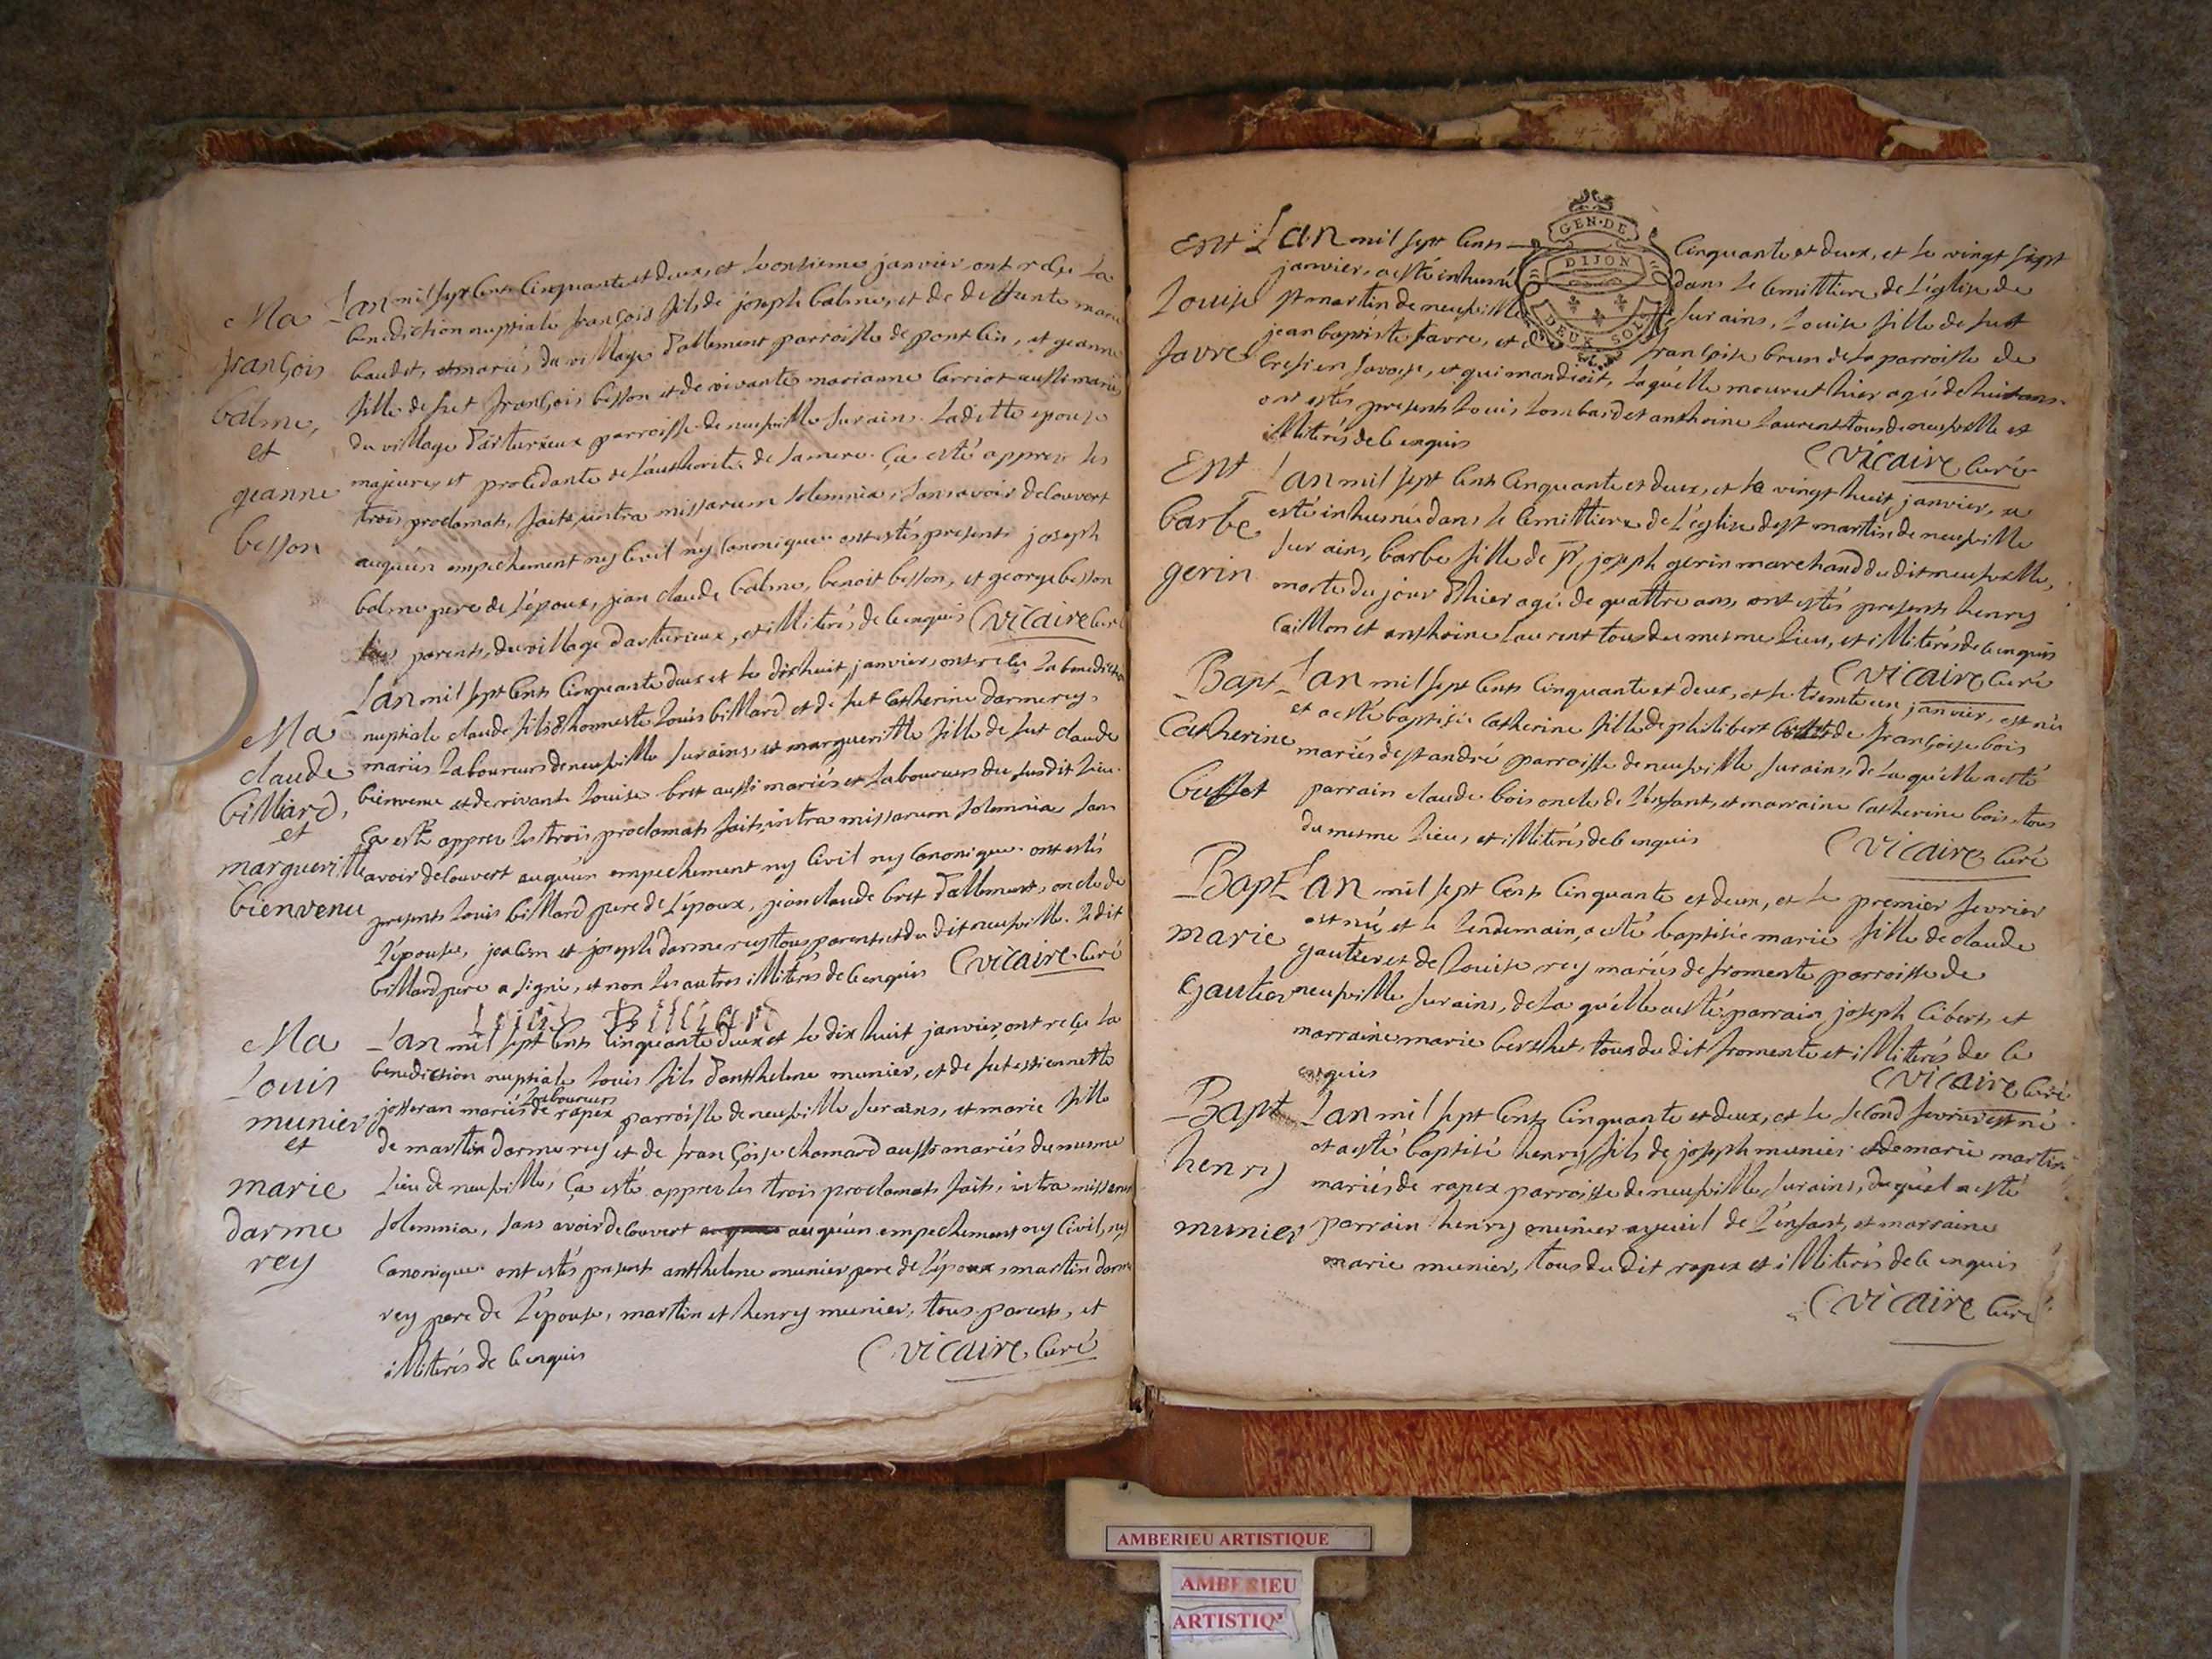 Ma
françois
balme,
et
geanne
besson
L'an mil sept cens cinquante et deux, et le onsieme janvier, ont reçu la
benediction nuptiale françois fils de joseph balme, et de deffunte marie
baudet, mariés, du village d'allement parroisse de pont cin, et geanne
fille de fut françois besson et de vivante marianne carriot aussi mariés
du village d'arturieux parroisse de neufville sur ains. laditte epouse
majeure, et procedante de l'authorité de sa mere. ça esté apprés les
trois proclamats, faits, intra missarum solemnia, sans avoir decouvert
auqu'un empechement ny civil ny canonique. ont estés presents joseph
balme pere de l'époux, jean claude balme, benoit besson, et george besson
tous parents, du village d'arturieux, et illiterés de ce enquis C vicaire curé
Ma
claude
billiard,
et
margueritte
bienvenu
L'an mil sept cens cinquante deux et le dix huit janvier, ont reçu la benediction
nuptiale claude fils d'honneste louis billiard et de fut catherine darmerey,
mariés laboureurs de neufville sur ains, et marguerittte fille de fut claude
bienvenu et de vivante louise bret aussi mariés et laboureurs du susdit lieu.
ça esté apprés les trois proclamats faits, intra missarum solemnia sans
avoir decouvert auqu'un empechement ny civil ny canonique. ont estés
presents louis billiard pere de l'époux, jean claude bret d'allement, oncle de
l'épouse, et joseph darmerey tous parents et du dit neufville. ledit
billiard pere a signé, et non les autres illiterés de ce enquis C vicaire curé
Louis Billiard
Ma
Louis
munier
et
marie
darme
rey
L'an mil sept cens cinquante deux et le dix huit janvier, ont reçu la
benediction nuptiale louis fils d'anthelme munier, et de fut estiennette
josseran mariés laboureurs de rapex parroisse de neufville sur ains, et marie fille
de martin darmerey et de françoise chamard aussi mariés du mesme
lieu de neufville, ça esté apprés les trois proclamats faits, intra missarum
solemnia, sans avoir decouvert auqu'un empechement ny civil, ny
canonique. ont estés present anthelme munier pere de l'époux, martin darme
rey pere de l'épouse, martin et henry munier, tous parents, et
illiterés de ce enquis C vicaire curé
GEN·DE
DIJON
DEUX SOLS
Ent
Louise
favre
L'an mil sept cens cinquante et deux, et le vingt sept
janvier, a esté inhumée dans le cemittiere de l'église de
st martin de neufville sur ains, Louise fille de fut
jean baptiste favre, et de françoise brun de la parroisse de
en savoye, et qui mandioit, laqu'elle mourut hier agée de huit ans.
ont estés presents louis lombard et anthoine laurent tous de neufville et
illiterés de ce enquis C vicaire curé
Ent
barbe
gerin
L'an mil sept cens cinquante et deux, et le vingt huit janvier, a
esté inhumée dans le cemittiere de l'église de st martin de neufville
sur ains, barbe fille de joseph gerin marchand du dit neufville,
morte du jour d'hier agée de quattre ans, ont estés presents henry
caillon et anthoine laurent tous du mesme lieu, et illiterés de ce enquis
C vicaire curé
Bapt
Catherine
busset
L'an mil sept cens cinquante et deux, et le trente un janvier, est née
et a esté baptisée catherine fille de philibert busset et de françoise bois
mariés de st andré parroisse de neufville sur ains, de laqu'elle a esté
parrain claude bois oncle de l'enfant, et marraine catherine bois, tous
du mesme lieu, et illiterés de ce enquis C vicaire curé
Bapt
marie
gautier
L'an mil sept cens cinquante et deux, et le premier fevrier
est née, et le lendemain, a esté baptisée marie fille de claude
gautier et de louise rey mariés de fromente parroisse de
neufville sur ains, de laqu'elle a esté parrain joseph cibert, et
marraine marie berthet, tous du dit fromente et illiterés de ce
enquis C vicaire curé
Bapt
henry
munier
L'an mil sept cens cinquante et deux, et le second fevrier est né
et a esté baptisé henry fils de joseph munier et de marie martin
mariés de rapex parroisse de neufville sur ains, duqu'el a esté
parrain henry munier ayeuil de l'enfant, et marraine
marie munier, tous du dit rapex et illiterés de ce enquis
C vicaire curé
AMBERIEU ARTISTIQUE
AMBERIEU
ARTISTIQ